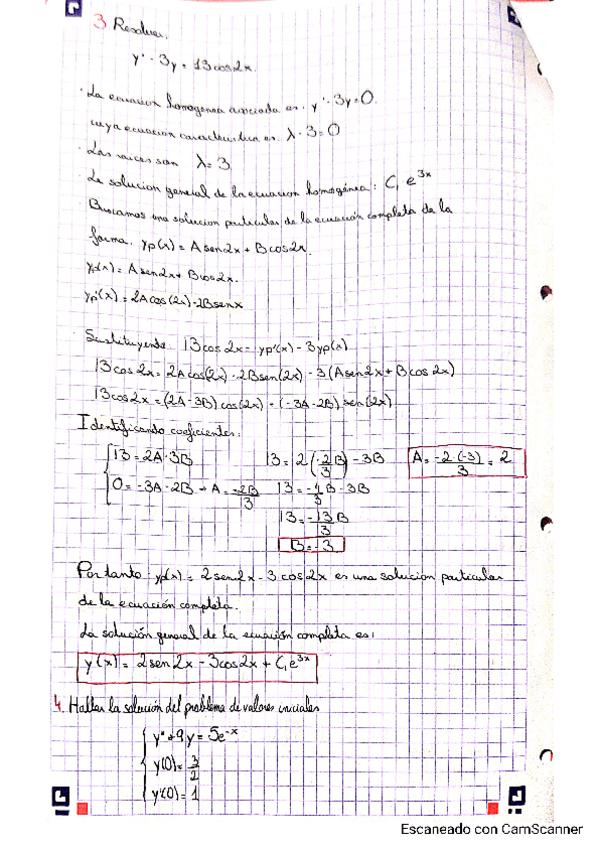 3 Resolver.
y' - 3y = 13cos2x.
· La ecuacion homogenea asociada es: y' - 3y = 0.
cuya ecuacion caracteristica es λ - 3 = 0
· Las raices son λ = 3
· La solucion general de la ecuacion homogénea: C₁ e^3x
Buscamos una solucion particular de la ecuación completa de la
forma. yp(x) = A sen2x + B cos2x.
yp(x) = A sen2x + B cos2x.
yp'(x) = 2A cos(2x) - 2B senx
· Sustituyendo 13 cos 2x = yp'(x) - 3yp(x)
13 cos 2x = 2A cos(2x) - 2B sen(2x) - 3 (A sen2x + B cos 2x)
13 cos 2x = (2A - 3B) cos(2x) + (-3A - 2B) sen(2x)
Identificando coeficientes:
13 = 2A - 3B 13 = 2 (-2B/3) - 3B A = -2(-3)/3 = 2
0 = -3A - 2B → A = -2B/3 13 = -4/3 B - 3B
13 = -13B/3
B = -3
Por tanto yp(x) = 2 sen2x - 3 cos2x es una solucion particular
de la ecuación completa.
La solución general de la ecuación completa es:
y(x) = 2sen2x - 3cos2x + C₁e^3x
4. Hallar la solución del problema de valores iniciales
y'' + 9y = 5e^-x
y(0) = 3/2
y'(0) = 1
Escaneado con CamScanner